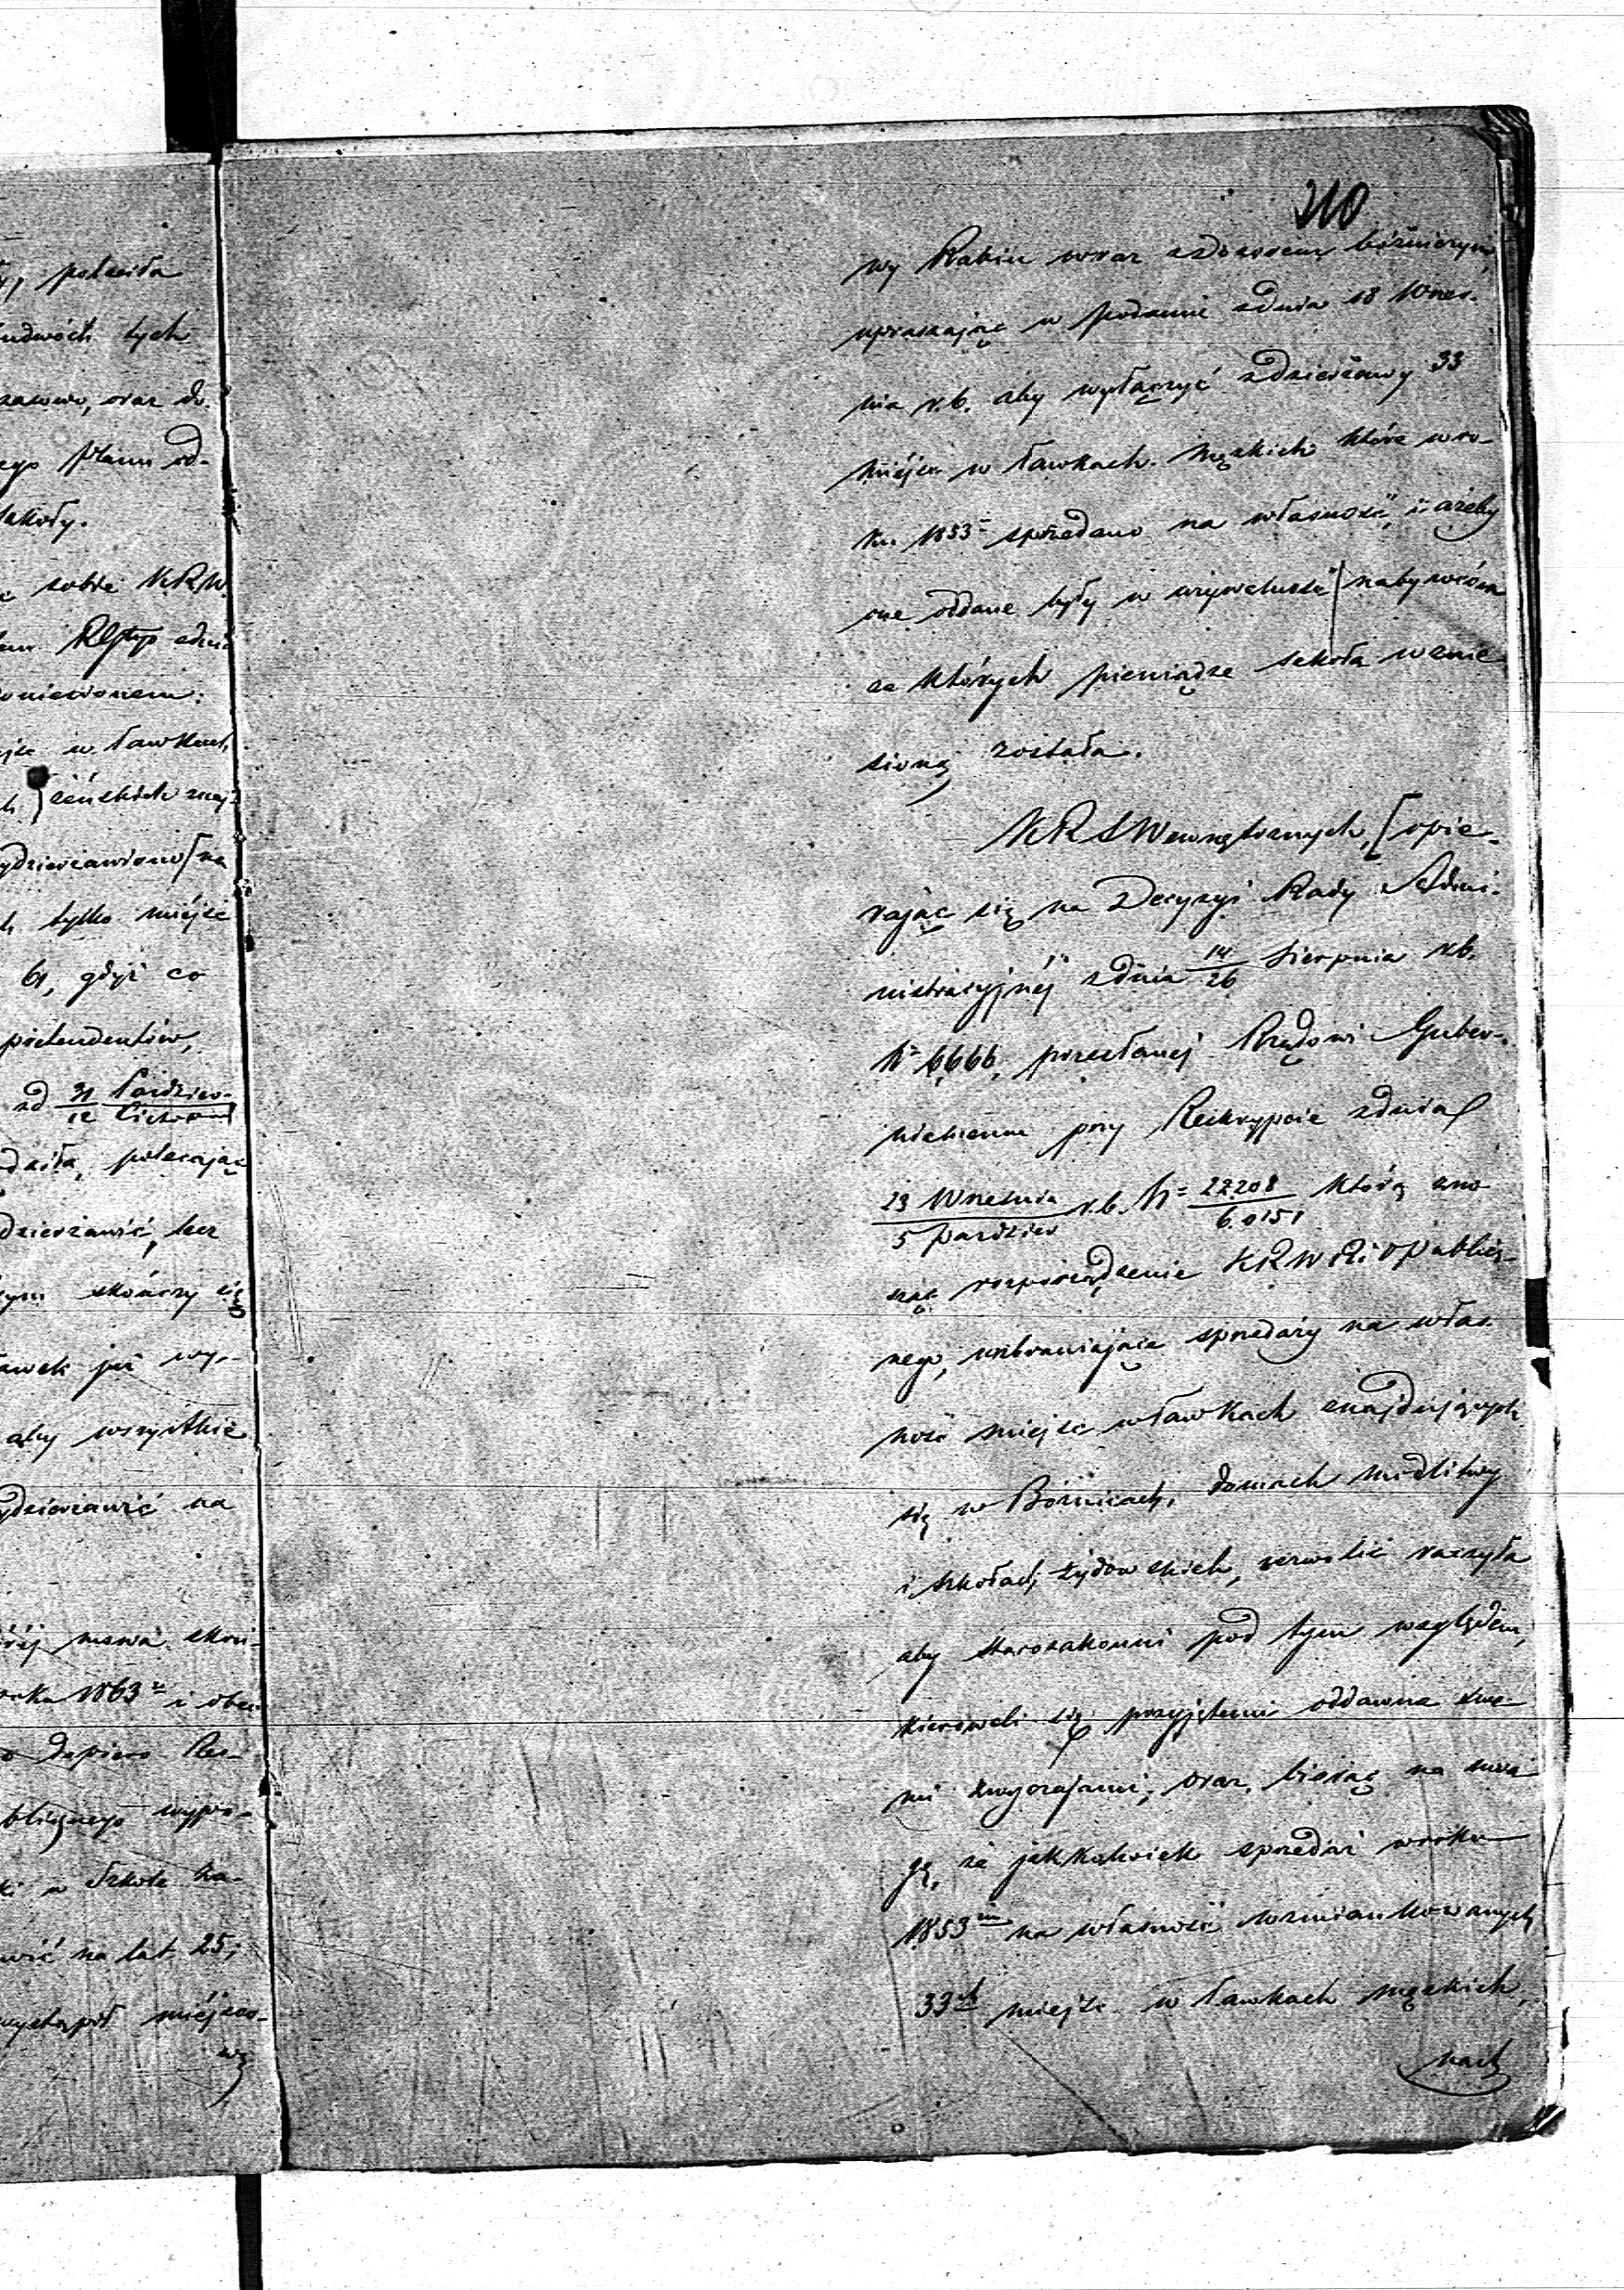 210
wy Rabin wraz zdozorem bóżniczym,
upraszając w podaniu zdnia 18 Wrześ-
nia r.b. aby wyłączyć zdzierżawy 33
miejsc w ławkach męzkich które wro-
ku 1853 sprzedano na własność, i ażeby
one oddane były w używalność nabywcóm
za których pieniądze szkoła wznie-
sioną została.
KRSWewnętrznych, opie-
rając się na Decyzyi Rady Admi-
nistracyjnéj zdnia 14/26 Sierpnia r.b.
N 6,666, przesłanej Rządowi Guber-
nialnemu przy Reskrypcie zdnia
23 Września / 5 Paździer r.b. N 22208 / 6.0151 którą zno-
sząc rozporządzenie KRW R i O Publicz-
nego, wzbraniające sprzedaży na włas-
ność miejsc włąwkach znajdujących
się w Bóżnicach, domach modlitwy
i szkołach żydowskich, zezwolić raczyła
aby starozakonni pod tym względem,
kierowali się przyjętemi oddawna swe-
mi zwyczajami, oraz, biorąc na uwa-
gę, że jakkolwiek sprzedaż wroku
1853 na własność wzmiankowanych
33ch miejsc w ławkach męzkich,
nach
y, poleciła
tych
oraz do-
ego planu od-
szkoły.
sobie K.R.W.
w ławkach
żeńskich znaj-
ydzierżawiono na
tylko miejsc
61, gdyż co
pretendentów,
od 31 Paździer- / 12 Listopad
dziła, polecając
dzierżawić, lecz
skończy się
ławek już wy-
aby wszystkie
ydzierżawić na
roku 1863 i obec-
dopiero Res-
blicznego wypro-
w Szkole
wić na lat 25,
wystąpił miejsco-
wy